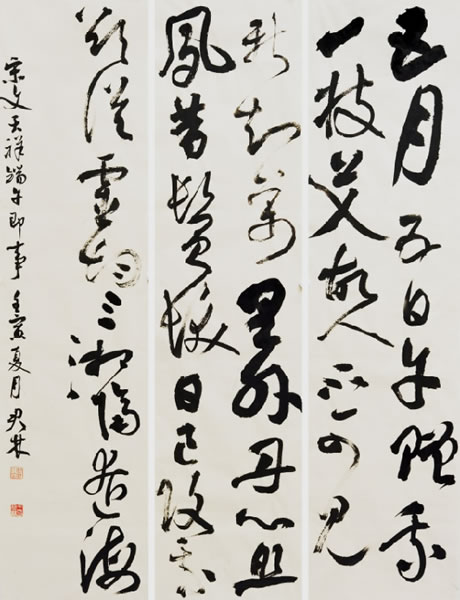 五月五日午贈我
一枝艾故人不可見
新知萬里外丹心照
鳳昔鬢髮日已改我
欲從靈均三湘隔遼海
宋文天祥端午即事 壬寅夏月